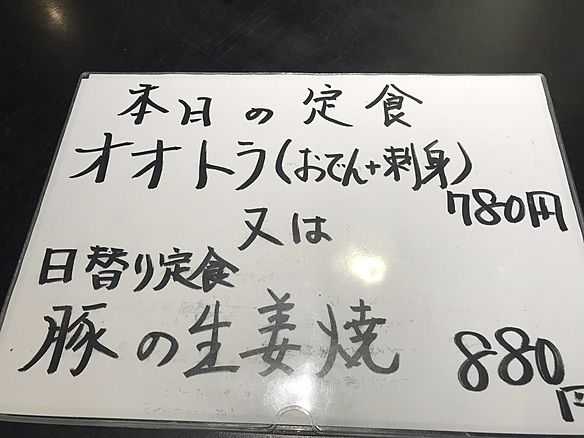 本日の定食
オオトラ(おでん+刺身)
780円
又は
日替り定食
豚の生姜焼
880円